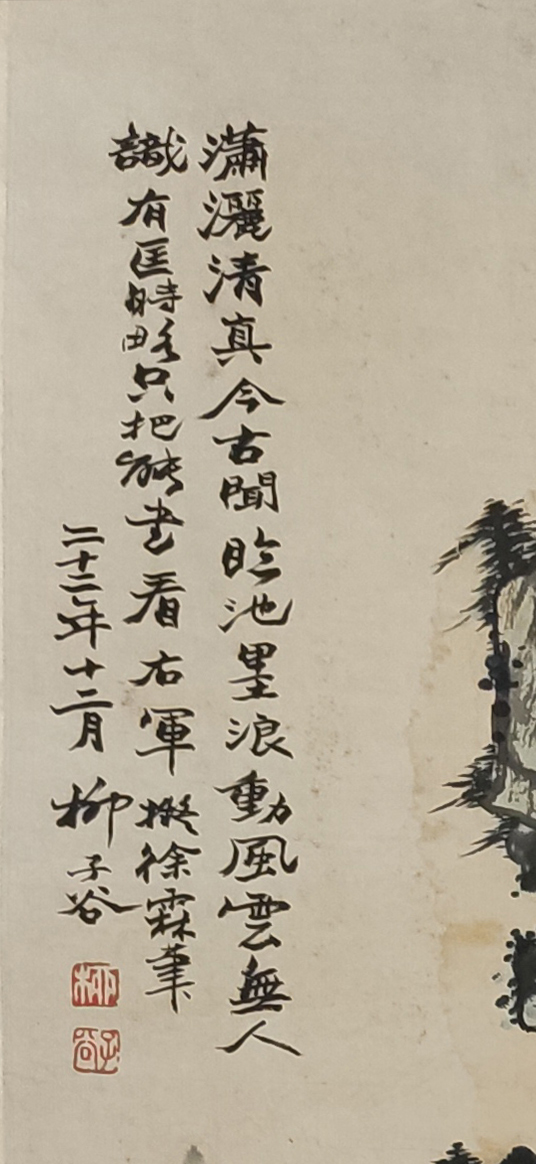 瀟灑清真今古聞臨池墨浪動風雲無人
識有匡時略只把能書看右軍擬徐霖筆
二十二年十二月柳子谷
柳
子谷